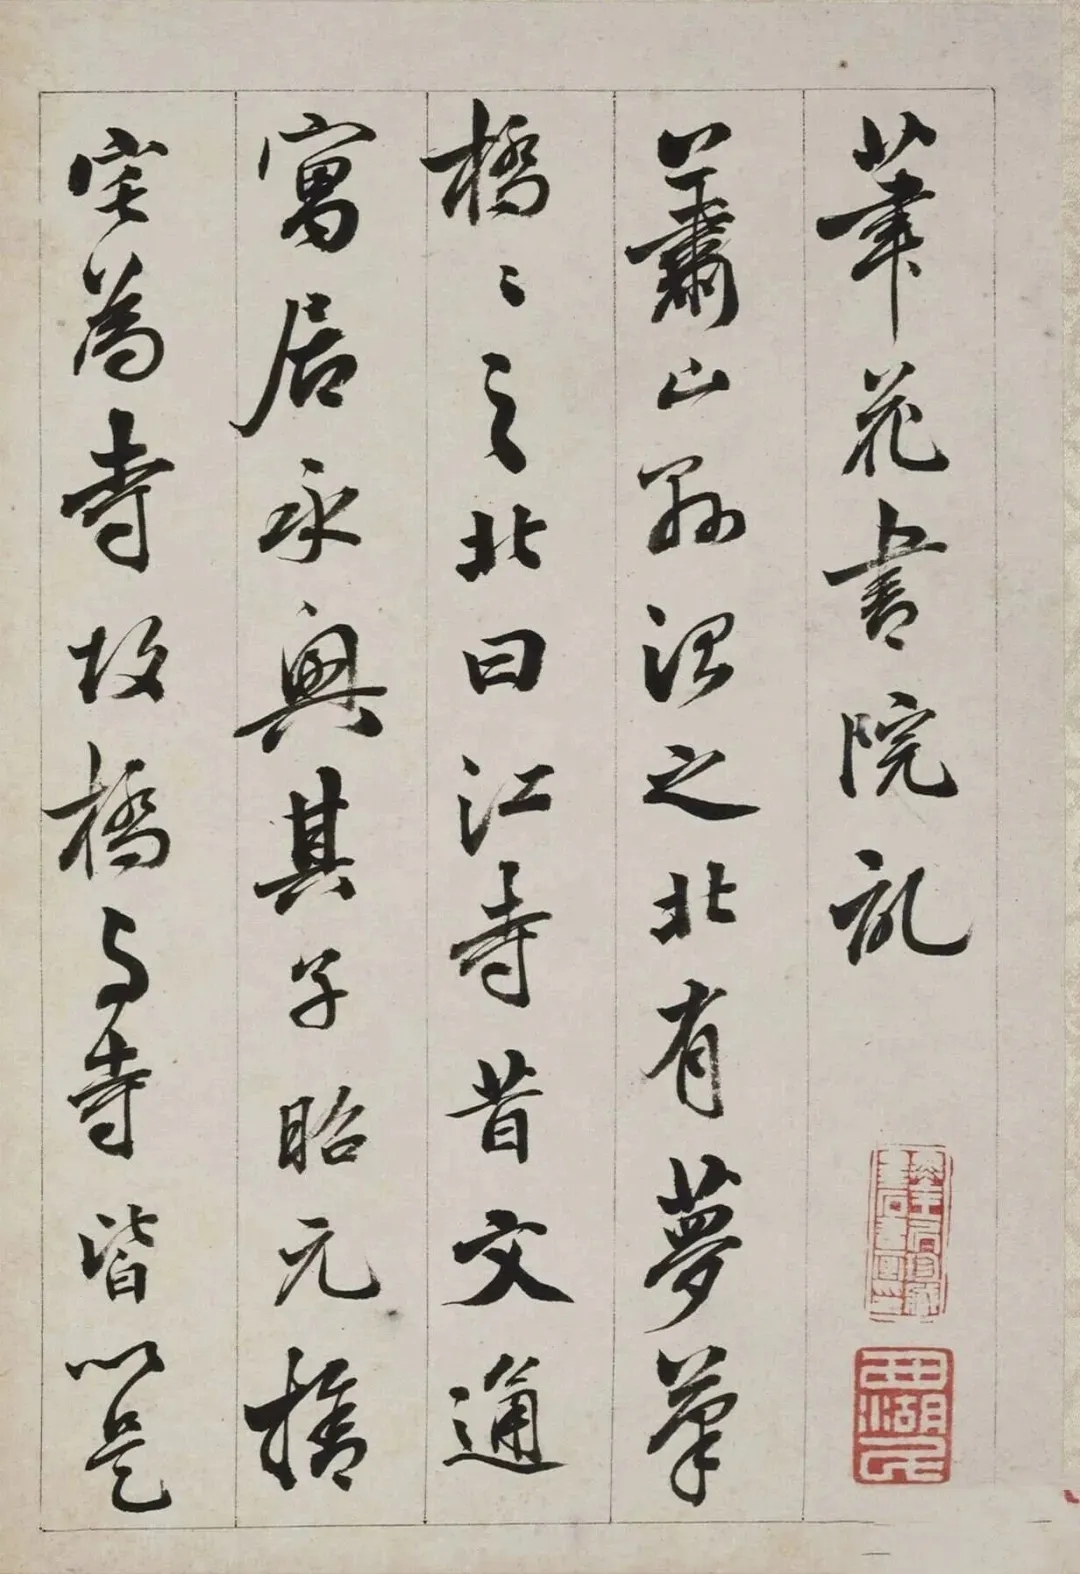 筆花書院記
蕭山縣治之北有夢筆
橋〻之北曰江寺昔文通
寓居永興其子昭元捨
宅為寺故橋与寺皆以是
西湖民